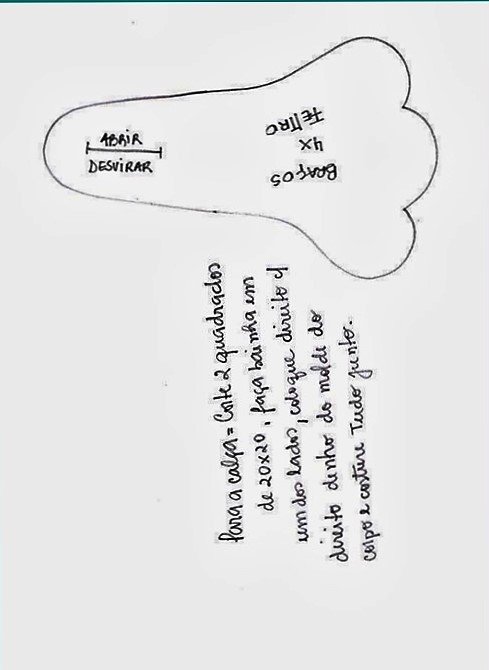 ABRIR
DESVIRAR
BRAÇOS
4X
FELTRO
Para a calça = Corte 2 quadrados
de 20x20, faça bainha em
um dos lados, coloque direito c/
direito dentro do molde do
corpo e costure Tudo junto.